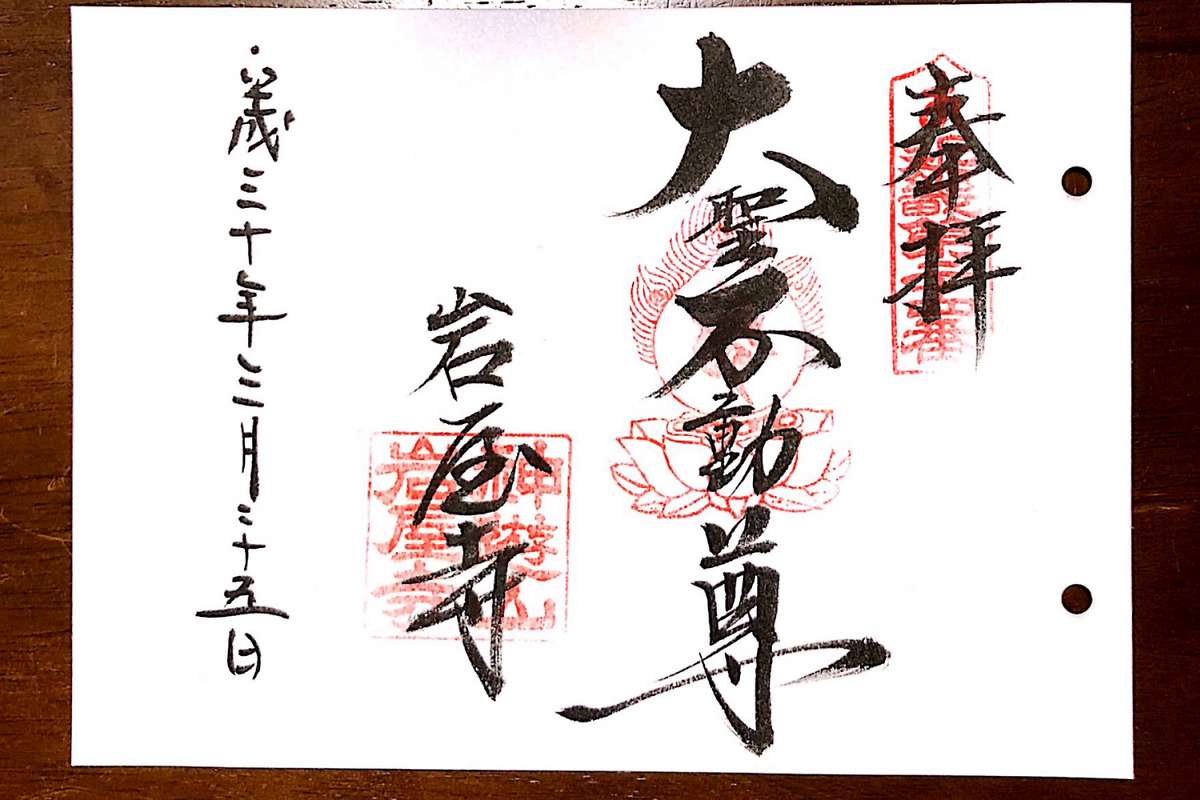 奉拝
大聖不動尊
岩屋寺
神遊山
岩屋寺
平成三十年三月二十五日